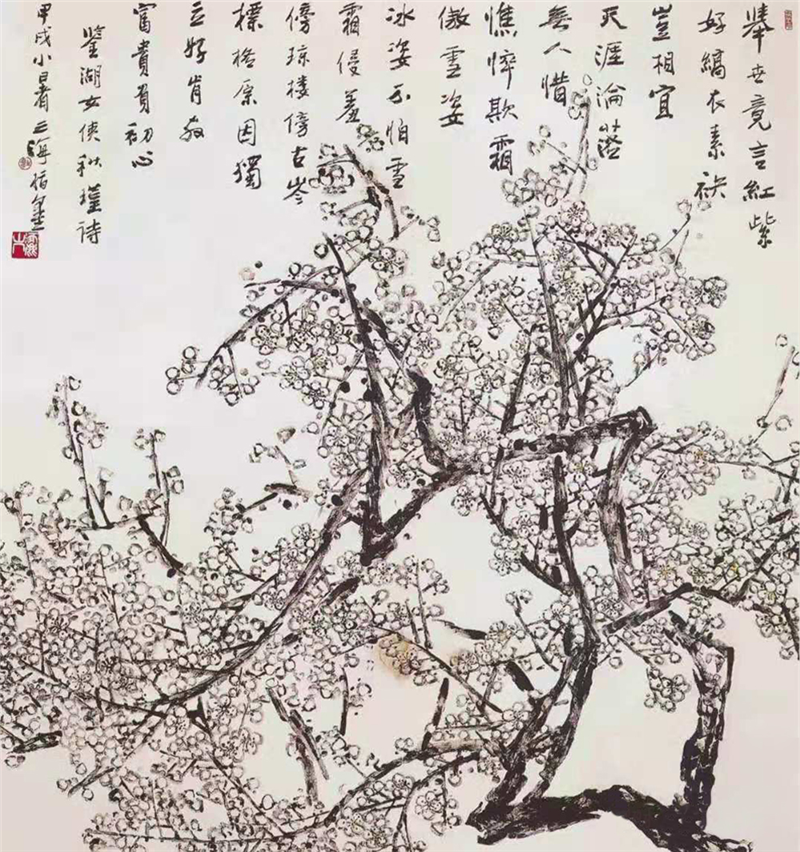 舉世竟言紅紫
好縞衣素袂
豈相宜
天涯淪落
無人惜
憔悴欺霜
傲雪姿
冰姿不怕雪
霜侵羞
傍瓊樓傍古岑
標格原因獨
立好肯教
富貴負初心
鑒湖女俠秋瑾詩
甲戌小暑